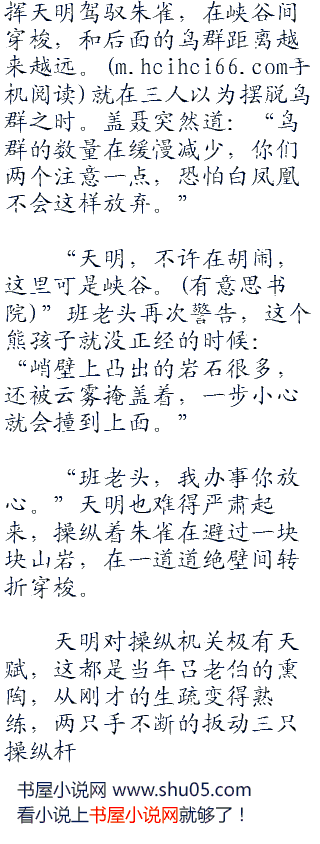 挥天明驾驭朱雀，在峡谷间
穿梭，和后面的鸟群距离越
来越远。(m.hcihci66.com手
机阅读)就在三人以为摆脱鸟
群之时。盖聂突然道：“鸟
群的数量在缓慢减少，你们
两个注意一点，恐怕白凤凰
不会这样放弃。”
“天明，不许在胡闹，
这里可是峡谷。(有意思书
院)”班老头再次警告，这个
熊孩子就没正经的时候：
“峭壁上凸出的岩石很多，
还被云雾掩盖着，一步小心
就会撞到上面。”
“班老头，我办事你放
心。”天明也难得严肃起
来，操纵着朱雀在避过一块
块山岩，在一道道绝壁间转
折穿梭。
天明对操纵机关极有天
赋，这都是当年吕老伯的熏
陶，从刚才的生疏变得熟
练，两只手不断的扳动三只
操纵杆
书屋小说网 www.shu05.com
看小说上书屋小说网就够了！